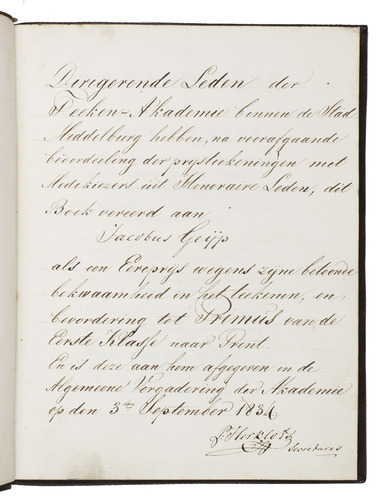 Dirigerende Leden der
Teeken-Akademie binnen de Stad
Middelburg hebben, na voorafgaande
bĳoordeeling der prysteekeningen met
Medekiezers uit Honoraire Leden, dit
Boek vereerd aan
Jacobus Geijp
als een Eereprys wegens zyne betoonde
bekwaamheid in het teekenen, en
bevordering tot Primus van de
Eerste Klasse naar Prent.
En is deze aan hem afgegeven in de
Algemeene Vergadering der Akademie
op den 3den September 1834
Secretaris